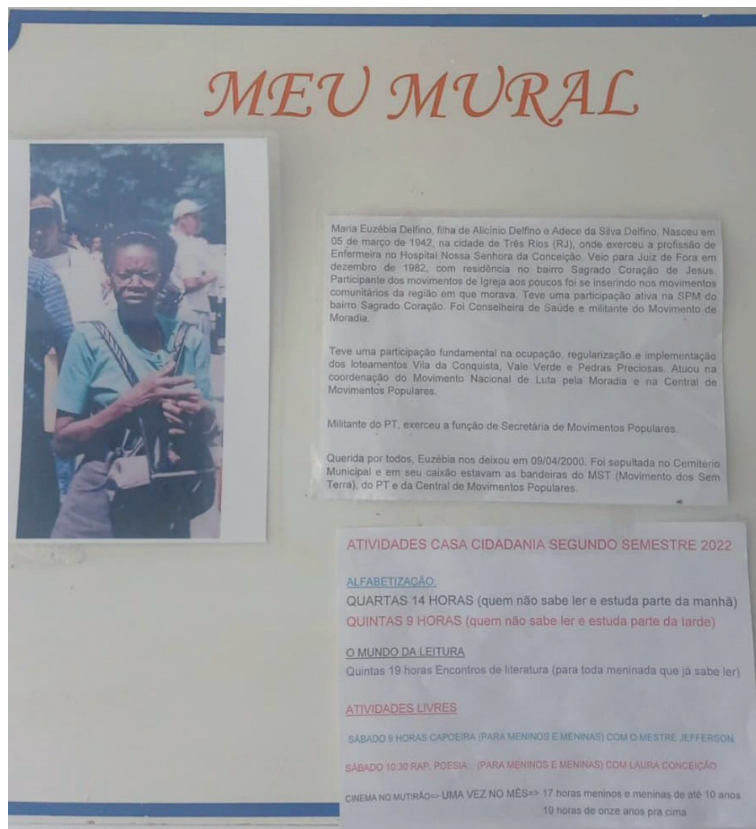 MEU MURAL
Maria Euzébia Delfino, filha de Alicínio Delfino e Adece da Silva Delfino, Nasceu em
05 de março de 1942, na cidade de Três Rios (RJ), onde exerceu a profissão de
Enfermeira no Hospital Nossa Senhora da Conceição. Veio para Juiz de Fora em
dezembro de 1982, com residência no bairro Sagrado Coração de Jesus.
Participante dos movimentos de Igreja aos poucos foi se inserindo nos movimentos
comunitários da região em que morava. Teve uma participação ativa na SPM do
bairro Sagrado Coração. Foi Conselheira de Saúde e militante do Movimento de
Moradia.
Teve uma participação fundamental na ocupação, regularização e implementação
dos loteamentos Vila da Conquista, Vale Verde e Pedras Preciosas. Atuou na
coordenação do Movimento Nacional de Luta pela Moradia e na Central de
Movimentos Populares.
Militante do PT, exerceu a função de Secretária de Movimentos Populares.
Querida por todos, Euzébia nos deixou em 09/04/2000. Foi sepultada no Cemitério
Municipal e em seu caixão estavam as bandeiras do MST (Movimento dos Sem
Terra), do PT e da Central de Movimentos Populares.
ATIVIDADES CASA CIDADANIA SEGUNDO SEMESTRE 2022
ALFABETIZAÇÃO:
QUARTAS 14 HORAS (quem não sabe ler e estuda parte da manhã)
QUINTAS 9 HORAS (quem não sabe ler e estuda parte da tarde)
O MUNDO DA LEITURA
Quintas 19 horas Encontros de literatura (para toda meninada que já sabe ler)
ATIVIDADES LIVRES
SÁBADO 9 HORAS CAPOEIRA (PARA MENINOS E MENINAS) COM O MESTRE JEFFERSON
SÁBADO 10:30 RAP, POESIA... (PARA MENINOS E MENINAS) COM LAURA CONCEIÇÃO
CINEMA NO MUTIRÃO=> UMA VEZ NO MÊS=> 17 horas meninos e meninas de até 10 anos
19 horas de onze anos pra cima